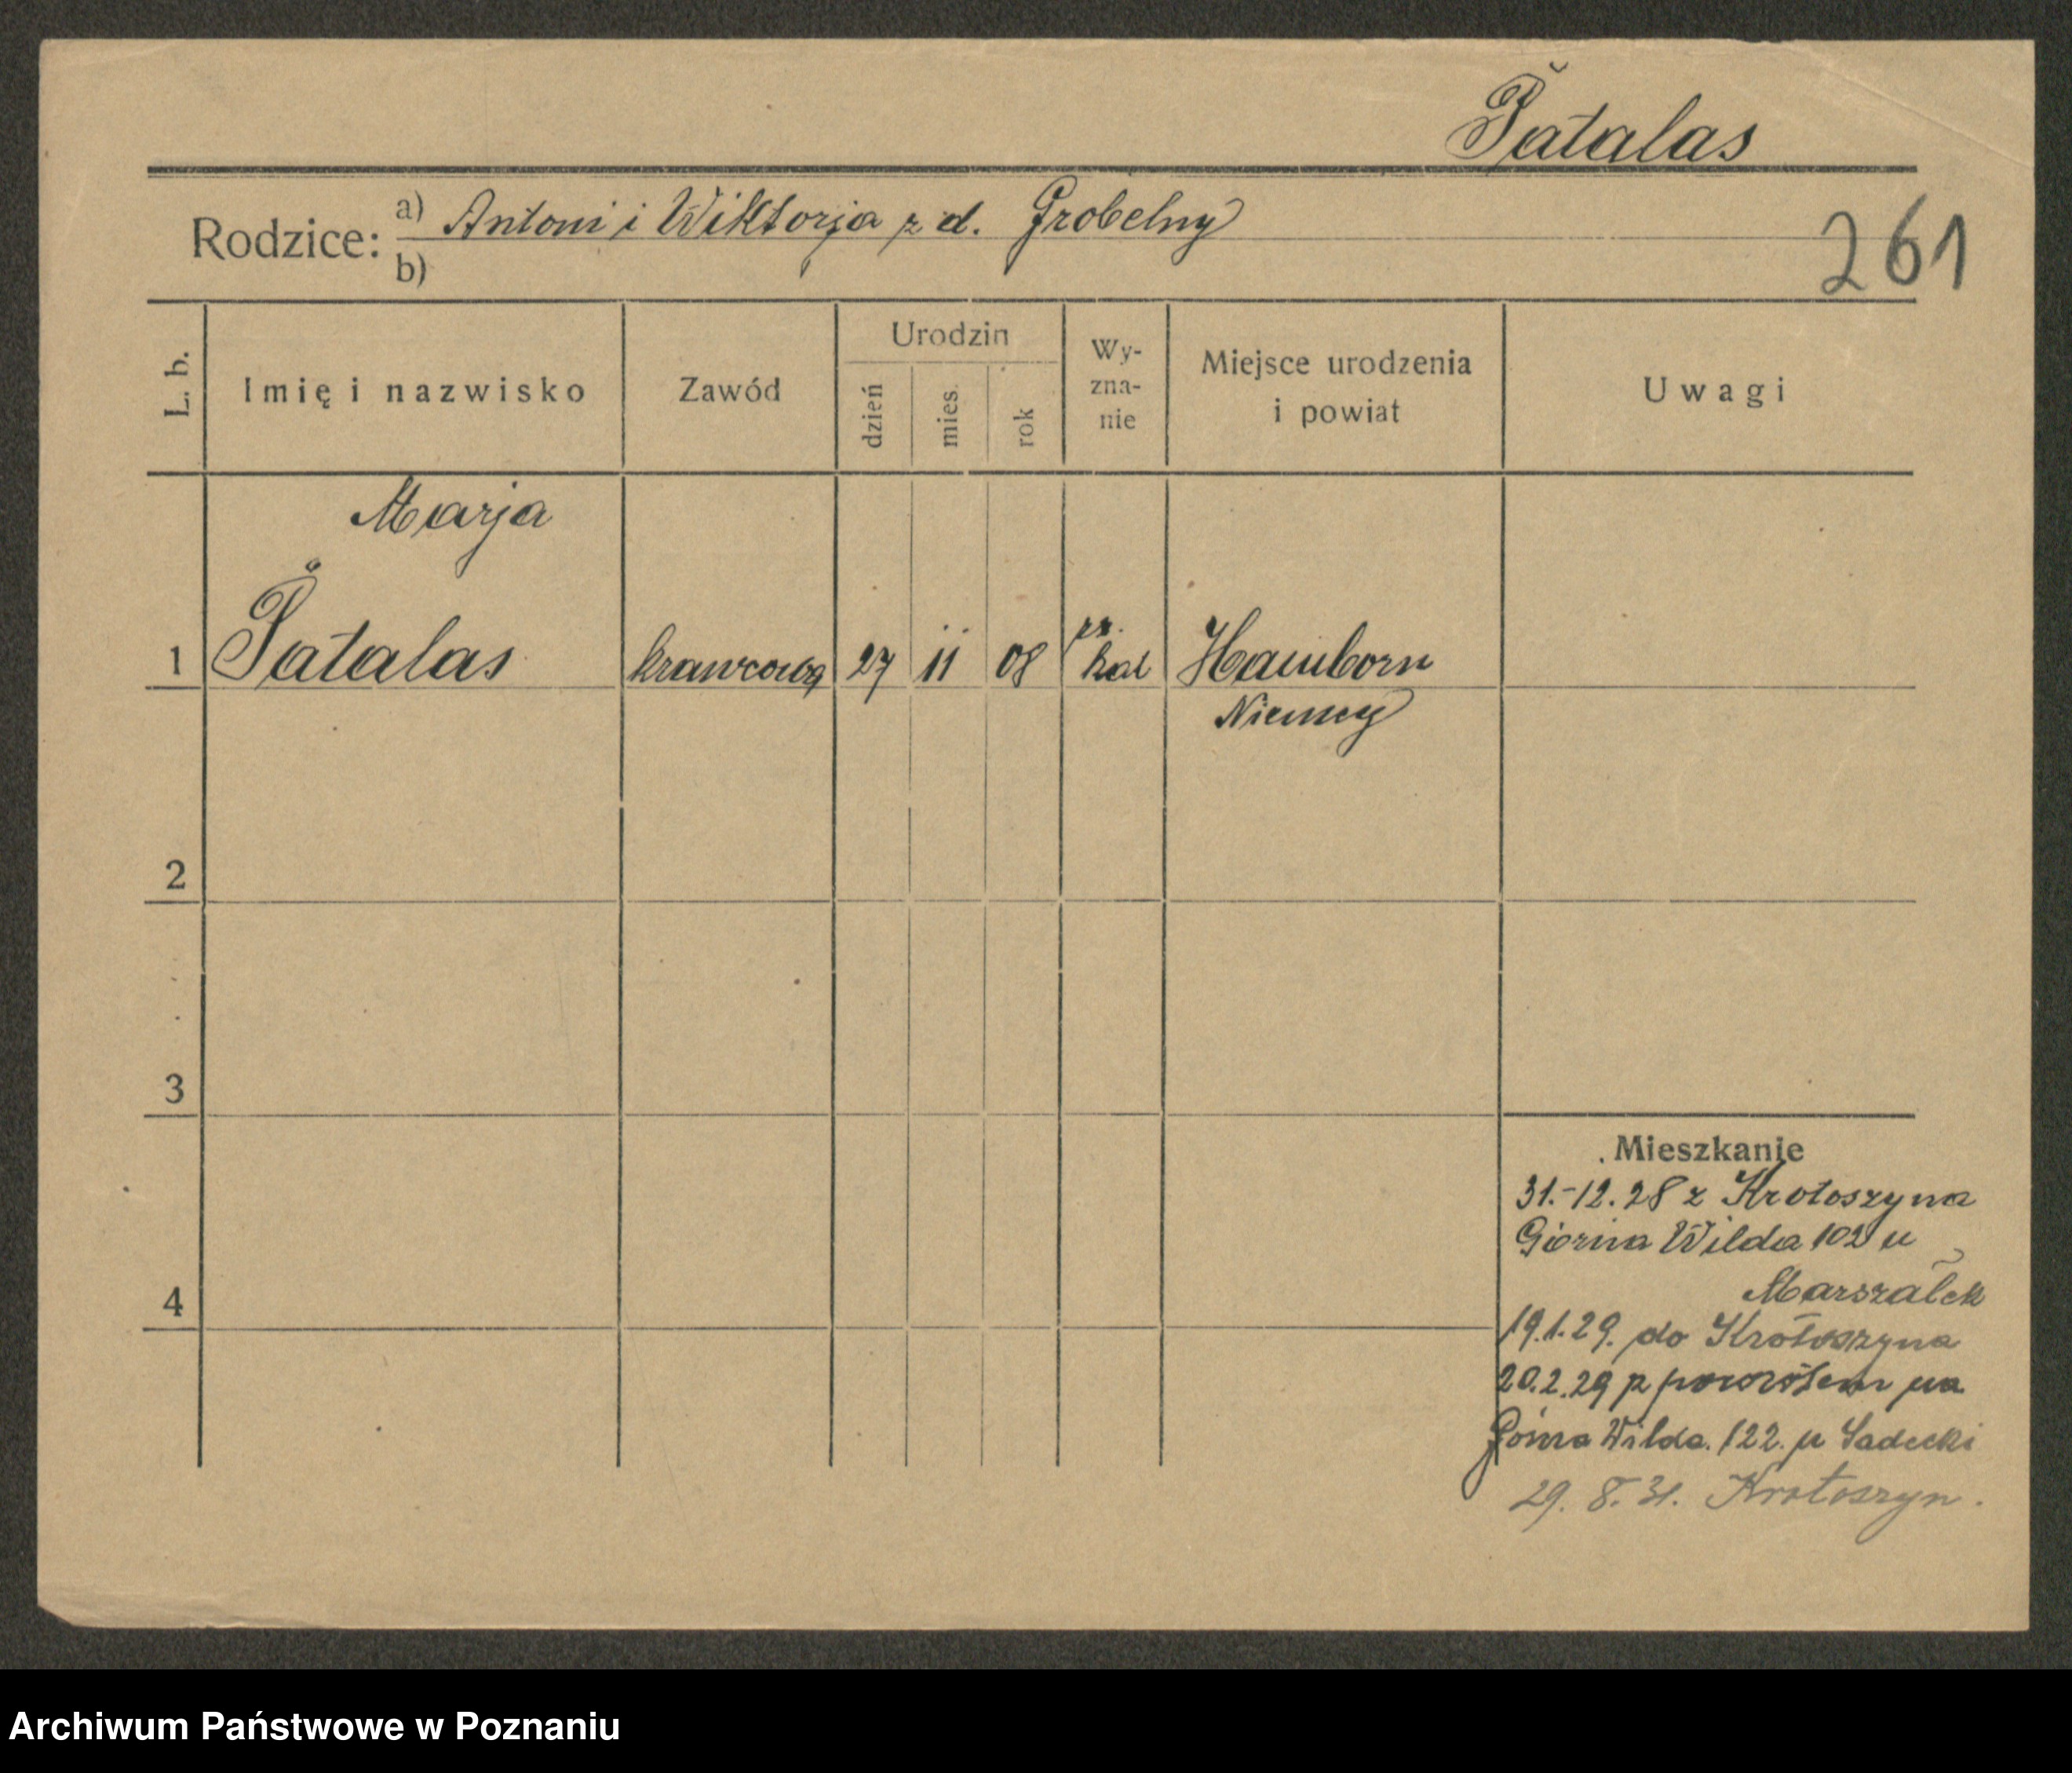 Patalas
Rodzice: a) Antoni i Wiktorja z d. Grobelny
b)
261
L. b.
Imię i nazwisko
Zawód
Urodzin
dzień
mies.
rok
Wy-
zna-
nie
Miejsce urodzenia
i powiat
Uwagi
Marja
1 Patalas krawcowa 27 11 08 rz. kat Hamborn
Niemcy
2
3
4
Mieszkanie
31.-12.28 z Krotoszyna
Górna Wilda 102 u
Marszałek
19.1.29. do Krotoszyna
20.2.29 z powrotem na
Górna Wilda. 122. u Sadecki
29. 8. 31. Krotoszyn.
Archiwum Państwowe w Poznaniu